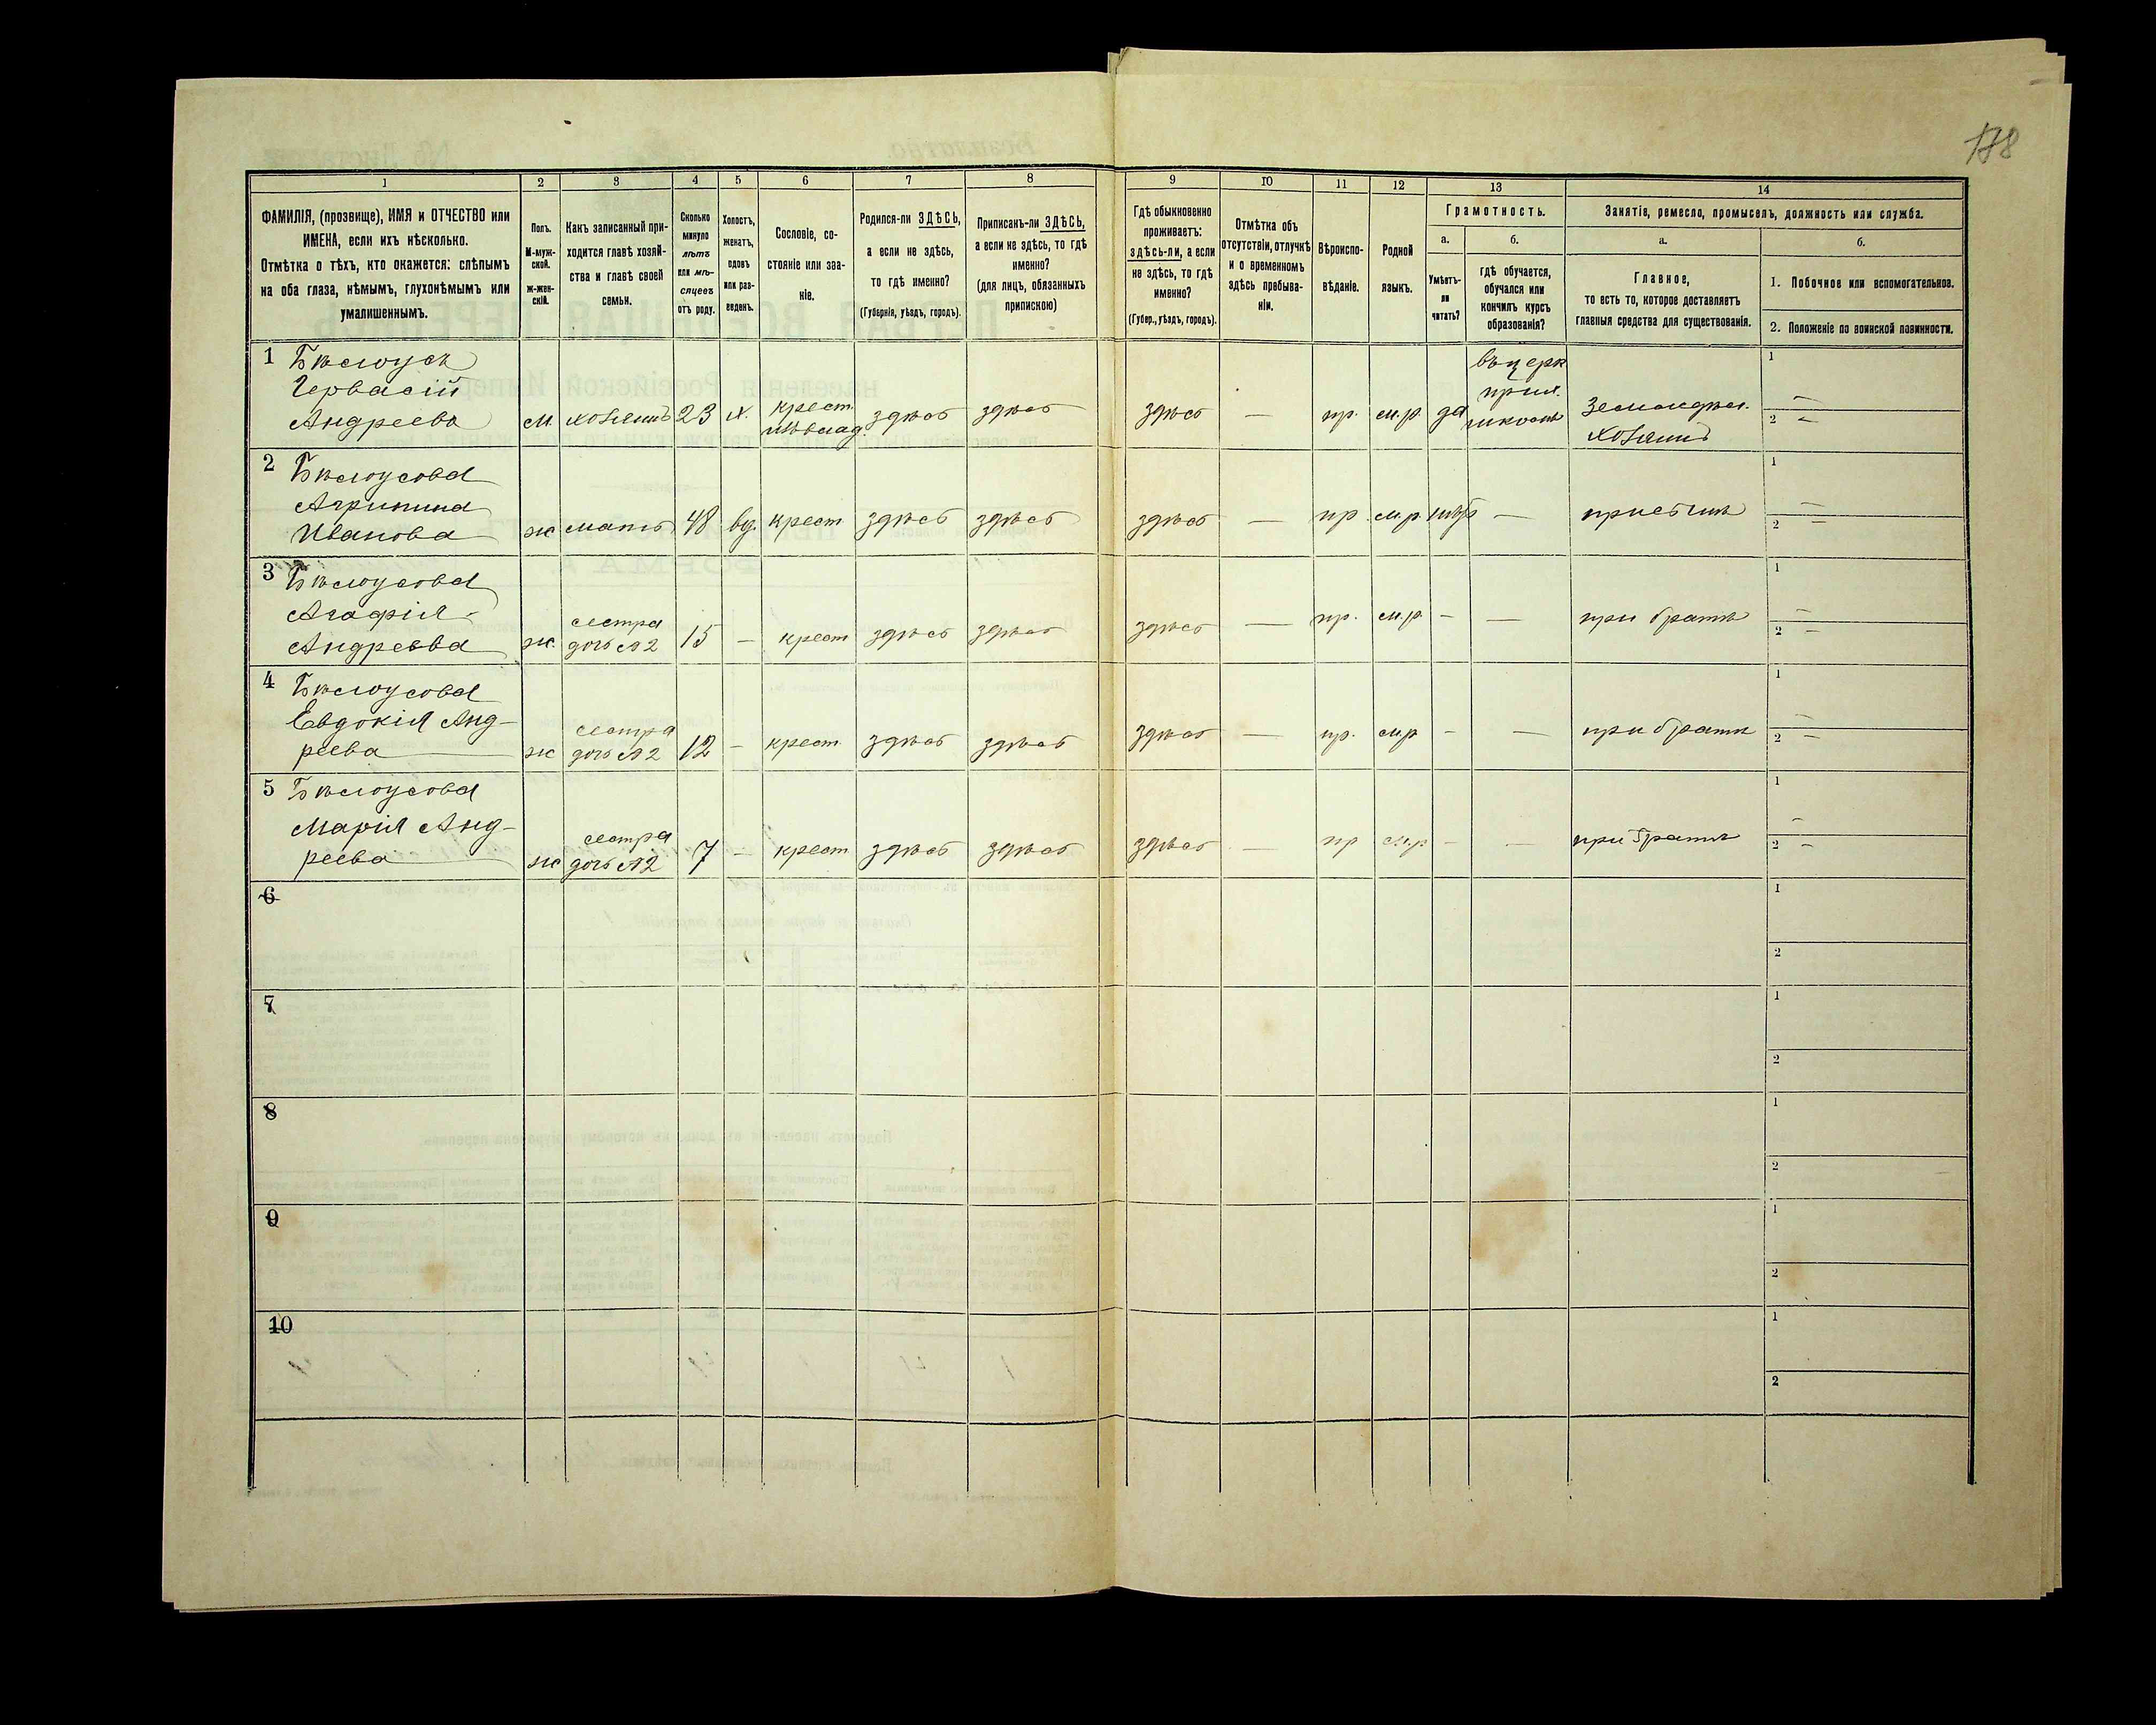 178
1 2 3 4 5 6 7 8 9 10 11 12 13 14
ФАМИЛІЯ, (прозвище), ИМЯ и ОТЧЕСТВО или
ИМЕНА, если ихъ нѣсколько.
Отмѣтка о тѣхъ, кто окажется: слѣпымъ
на оба глаза, нѣмымъ, глухонѣмымъ или
умалишеннымъ.
Полъ.
М-муж-
ской.
ж-жен-
скій.
Какъ записанный при-
ходится главѣ хозяй-
ства и главѣ своей
семьи.
Сколько
минуло
лѣтъ
или мѣ-
сяцевъ
отъ роду.
Холостъ,
женатъ,
вдовъ
или раз-
веденъ.
Сословіе, со-
стояніе или зва-
ніе.
Родился-ли ЗДѢСЬ,
а если не здѣсь,
то гдѣ именно?
(Губернія, уѣздъ, городъ).
Приписанъ-ли ЗДѢСЬ,
а если не здѣсь, то гдѣ
именно?
(для лицъ, обязанныхъ
припискою)
Гдѣ обыкновенно
проживаетъ:
здѣсь-ли, а если
не здѣсь, то гдѣ
именно?
(Губер., уѣздъ, городъ).
Отмѣтка объ
отсутствіи, отлучкѣ
и о временномъ
здѣсь пребыва-
ніи.
Вѣроиспо-
вѣданіе.
Родной
языкъ.
Грамотность.
а.
Умѣетъ-
ли
читать?
б.
гдѣ обучается,
обучался или
кончилъ курсъ
образованія?
Занятіе, ремесло, промыселъ, должность или служба.
а.
Главное,
то есть то, которое доставляетъ
главныя средства для существованія.
б.
1. Побочное или вспомогательное.
2. Положеніе по воинской повинности.
1 Бѣлоусъ
Гервасій
Андреевъ
м. хозяинъ 23 х. крест. здѣсь здѣсь здѣсь — пр. м.р. да
въ церк.
прих.
школѣ
Земледѣл.
хозяинъ
1 —
2 —
2 Бѣлоусова
Агрипина
Иванова
ж мать 48 вд. крест здѣсь здѣсь здѣсь — пр. м.р. нѣтъ — при сынѣ
1 —
2 —
3 Бѣлоусова
Агафія
Андреева
ж. сестра
дочь №2
15 — крест здѣсь здѣсь здѣсь — пр. м.р. — — при братѣ
1 —
2 —
4 Бѣлоусова
Евдокія Анд-
реева
ж сестра
дочь №2
12 — крест здѣсь здѣсь здѣсь — пр. м.р — — при братѣ
1 —
2 —
5 Бѣлоусова
Марія Анд-
реева
ж сестра
дочь №2
7 — крест здѣсь здѣсь здѣсь — пр м.р — — при братѣ
1 —
2 —
6
1
2
7
1
2
8
1
2
9
1
2
10
1
2